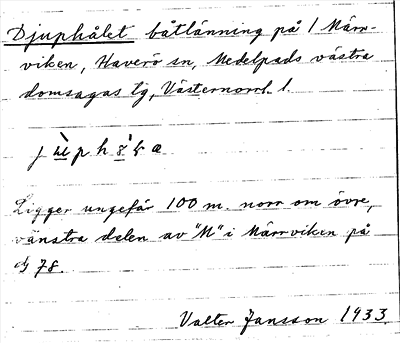 Djuphålet båtlänning på / Märr-
viken, Haverö sn, Medelpads västra
domsagas tg, Västernorrl. l.
Ligger ungefär 100 m. norr om övre,
vänstra delen av "M" i Märrviken på
78.
Valter Jansson 1933.